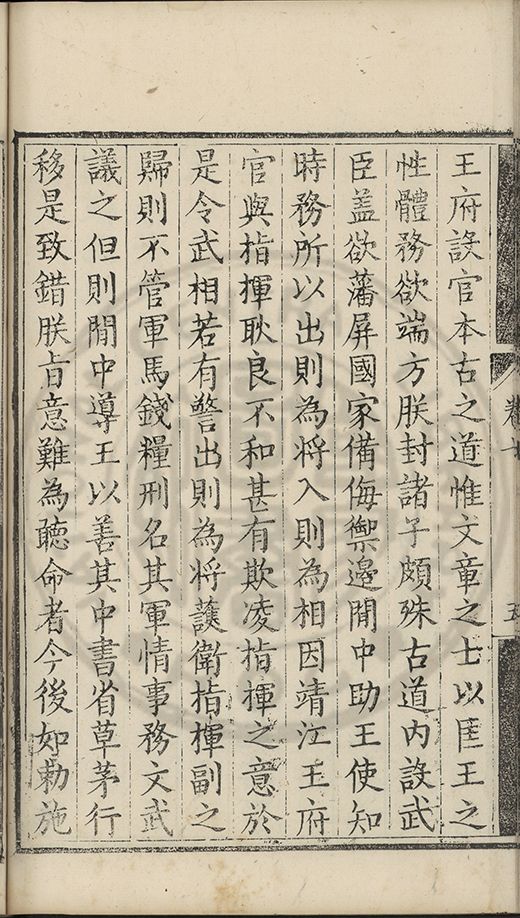 王府設官本古之道惟文章之士以匡王之
性體務欲端方朕封諸子頗殊古道内設武
臣盖欲藩屏國家備侮禦邊閒中助王使知
時務所以出則為将入則為相因靖江王府
官與指揮耿良不和甚有欺凌指揮之意於
是令武相若有警出則為將護衛指揮副之
歸則不管軍馬錢糧刑名其軍情事務文武
議之但則閒中導王以善其中書省草茅行
移是致錯朕旨意難為聴命者今後如勅施
卷七